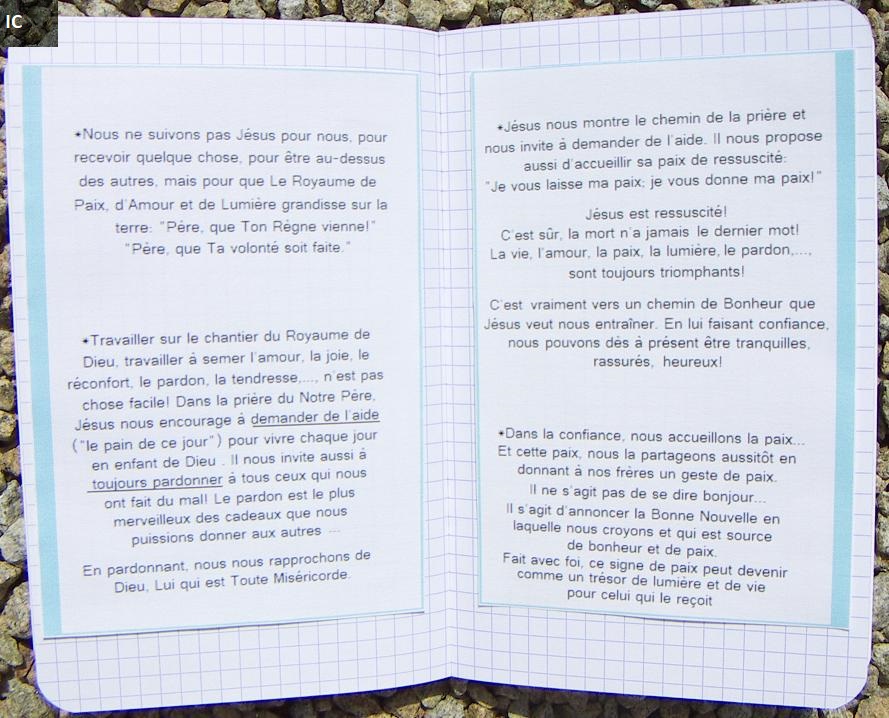 IC
*Nous ne suivons pas Jésus pour nous, pour
recevoir quelque chose, pour être au-dessus
des autres, mais pour que Le Royaume de
Paix, d'Amour et de Lumière grandisse sur la
terre: "Père, que Ton Règne vienne!"
"Père, que Ta volonté soit faite."
*Travailler sur le chantier du Royaume de
Dieu, travailler à semer l'amour, la joie, le
réconfort, le pardon, la tendresse,..., n'est pas
chose facile! Dans la prière du Notre Père,
Jésus nous encourage à demander de l'aide
("le pain de ce jour") pour vivre chaque jour
en enfant de Dieu . Il nous invite aussi à
toujours pardonner à tous ceux qui nous
ont fait du mal! Le pardon est le plus
merveilleux des cadeaux que nous
puissions donner aux autres ...
En pardonnant, nous nous rapprochons de
Dieu, Lui qui est Toute Miséricorde.
*Jésus nous montre le chemin de la prière et
nous invite à demander de l'aide. Il nous propose
aussi d'accueillir sa paix de ressuscité:
"Je vous laisse ma paix; je vous donne ma paix!"
Jésus est ressuscité!
C'est sûr, la mort n'a jamais le dernier mot!
La vie, l'amour, la paix, la lumière, le pardon,...,
sont toujours triomphants!
C'est vraiment vers un chemin de Bonheur que
Jésus veut nous entraîner. En lui faisant confiance,
nous pouvons dès à présent être tranquilles,
rassurés, heureux!
*Dans la confiance, nous accueillons la paix...
Et cette paix, nous la partageons aussitôt en
donnant à nos frères un geste de paix.
Il ne s'agit pas de se dire bonjour...
Il s'agit d'annoncer la Bonne Nouvelle en
laquelle nous croyons et qui est source
de bonheur et de paix.
Fait avec foi, ce signe de paix peut devenir
comme un trésor de lumière et de vie
pour celui qui le reçoit